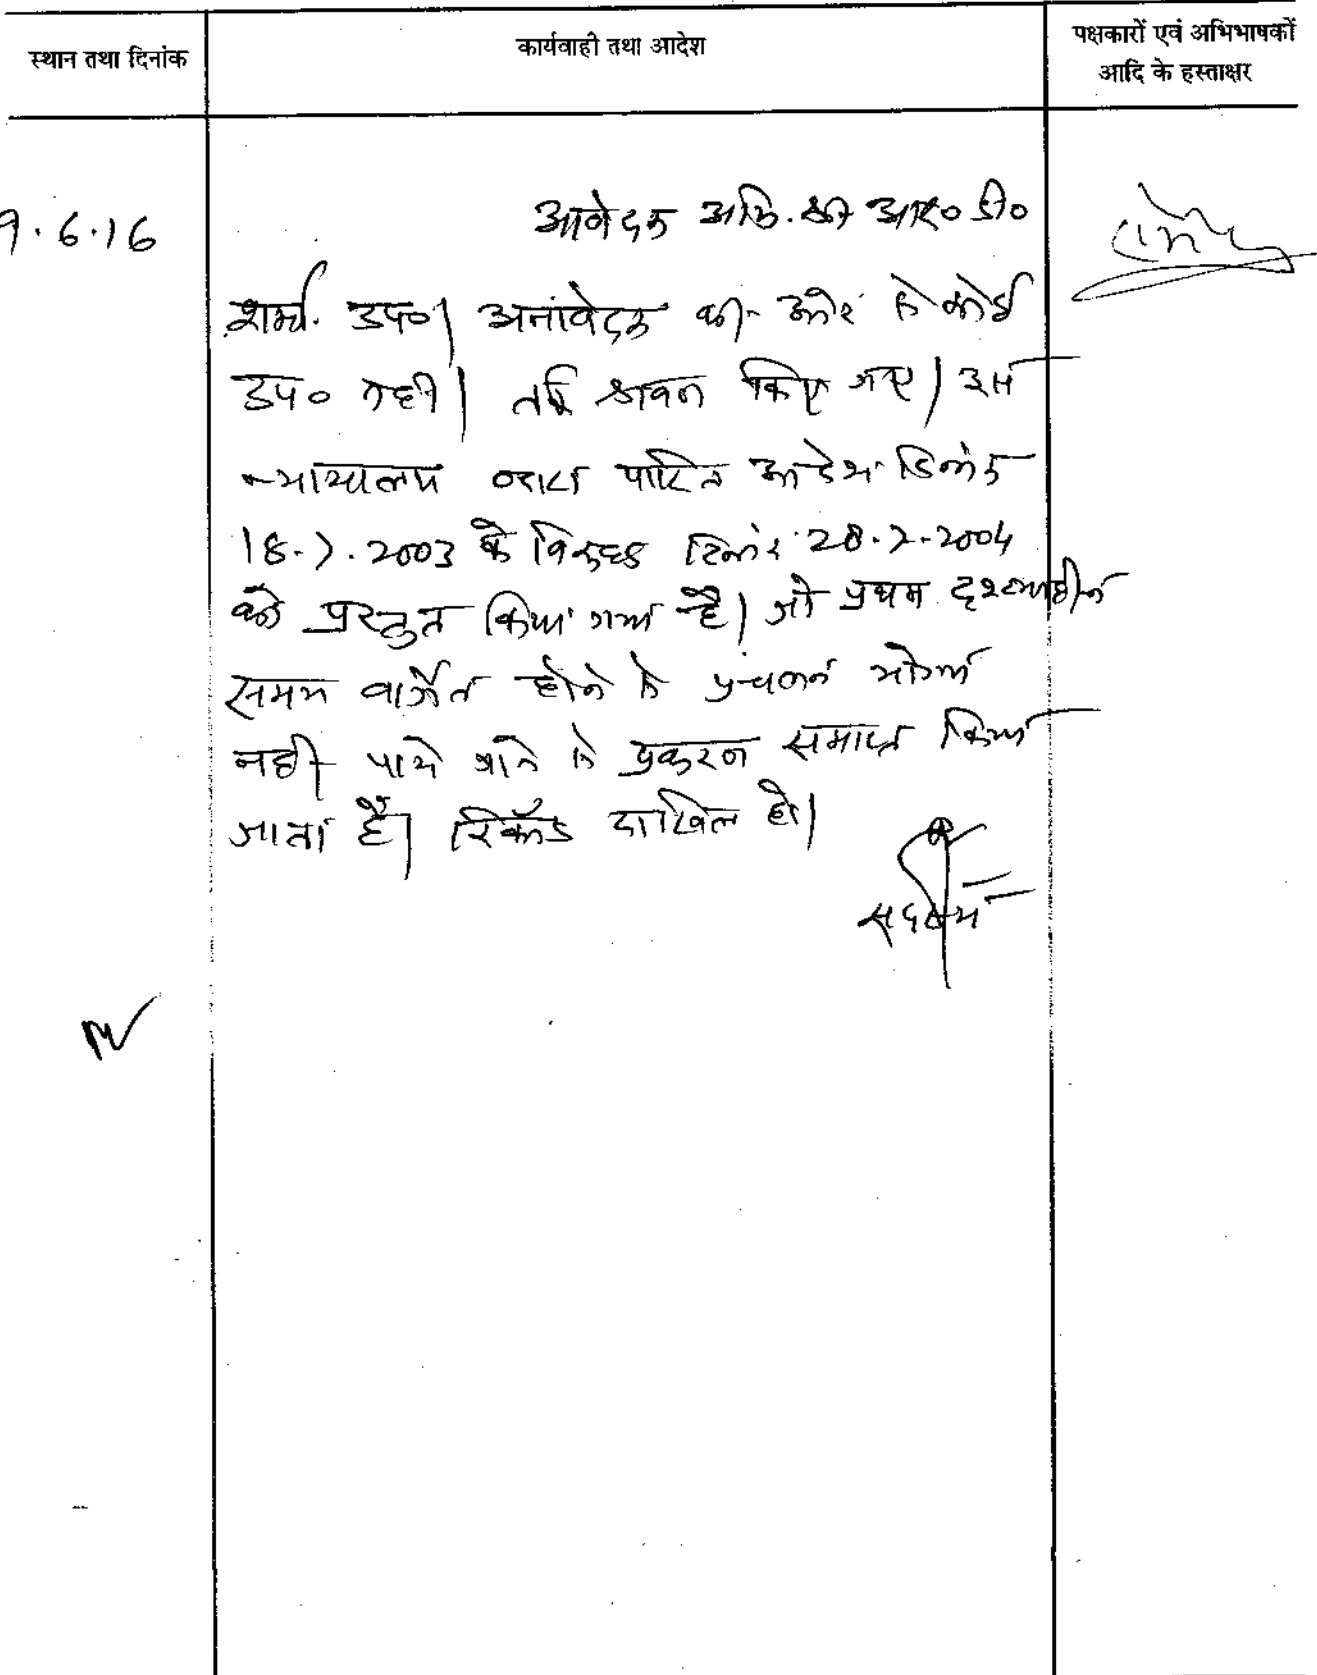 स्थान तथा दिनांक
कार्यवाही तथा आदेश
पक्षकारों एवं अभिभाषकों
आदि के हस्ताक्षर
9.6.16
आवेदक अभि. श्री आर० डी०
शर्मा उप०| अनावेदक की ओर से कोई
उप० नहीं| तर्क श्रवण किए गए| इस
न्यायालय द्वारा पारित आदेश दिनांक
18.7.2003 के विरूद्ध दिनांक 28.7.2004
को प्रस्तुत किया गया है| जो प्रथम दृष्टया ही
समय वार्जित होने से प्रचलन योग्य
नहीं पाये जाने से प्रकरण समाप्त किया
जाता है| रिकॉर्ड दाखिल हो|
सदस्य